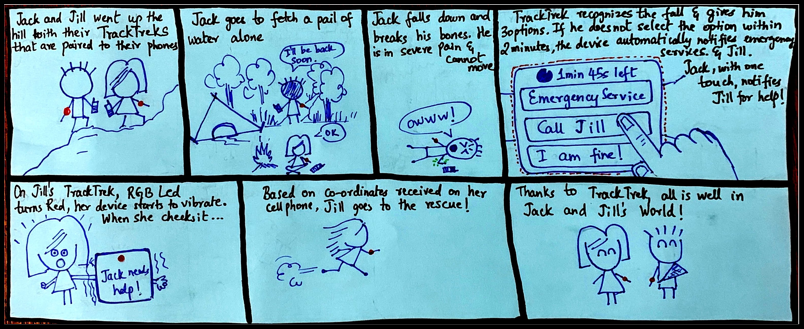 Jack and Jill went up the
hill with their TrackTreks
that are paired to their phones
Jack goes to fetch a pail of
water alone
I'll be back
soon.
OK
Jack falls down and
breaks his bones. He
is in severe pain &
cannot
move
OWWW!
TrackTrek recognizes the fall & gives him
3 options. If he does not select the option within
2 minutes, the device automatically notifies emergency
services & Jill.
1 min 45s left
Emergency Service
Call Jill
I am fine!
Jack, with one
touch, notifies
Jill for help!
On Jill's TrackTrek, RGB Led
turns Red, her device starts to vibrate.
When she checks it...
Jack needs
help!
Based on co-ordinates received on her
cell phone, Jill goes to the rescue!
Thanks to TrackTrek, all is well in
Jack and Jill's World!